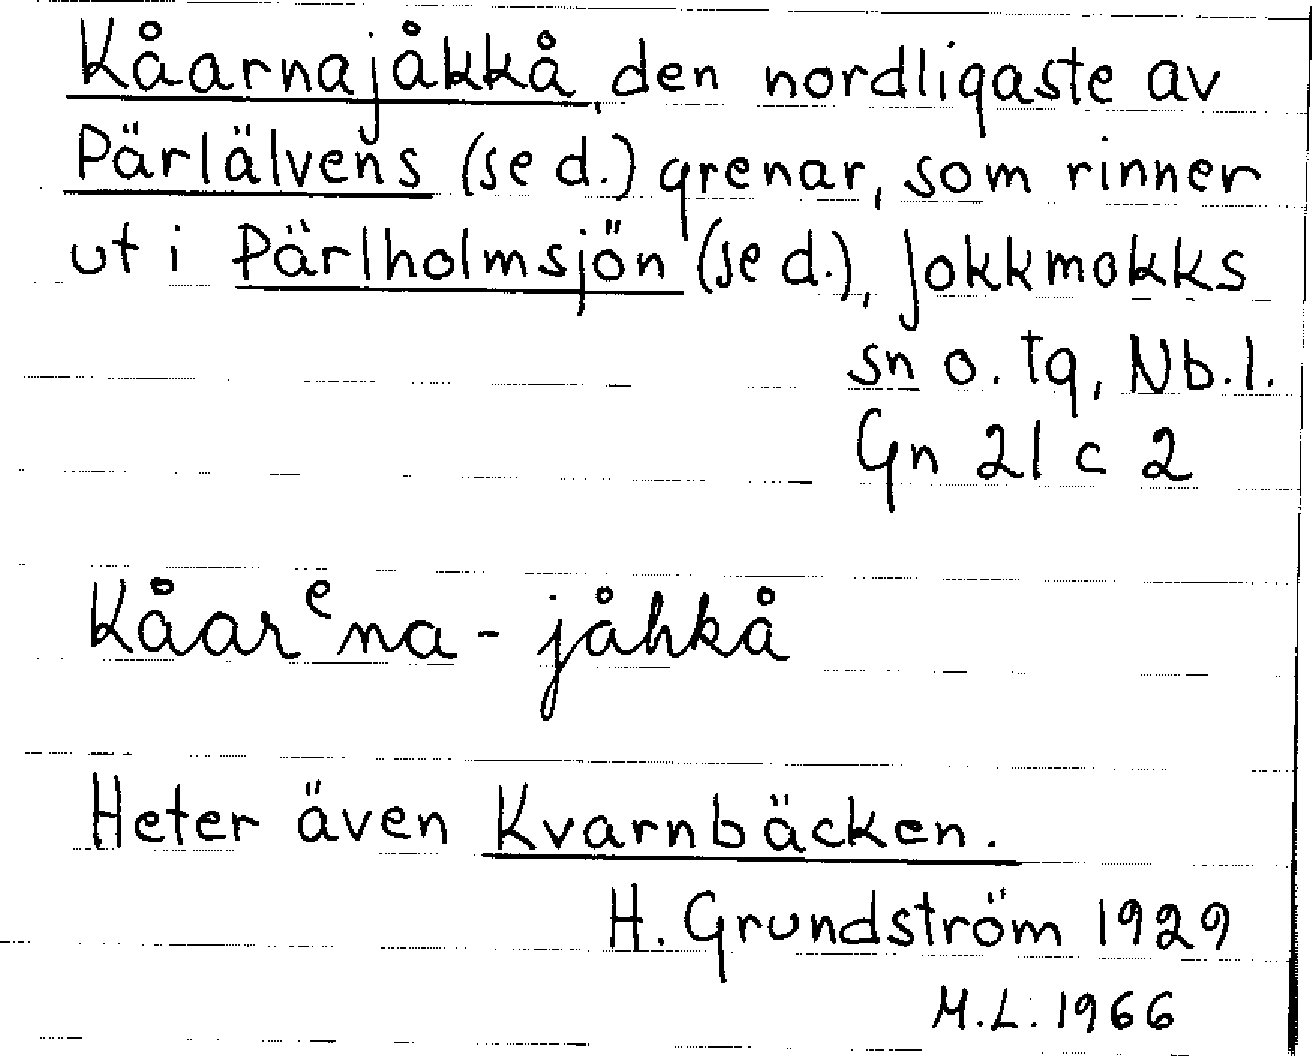 Kåarnajåkkå, den nordligaste av
Pärlälvens (se d.) grenar, som rinner
ut i Pärlholmsjön (se d.), Jokkmokks
sn o. tg, Nb.l.
Gn 21 c 2
Kåarᵉna-jåhkå
Heter även Kvarnbäcken.
H. Grundström 1929
M.L. 1966